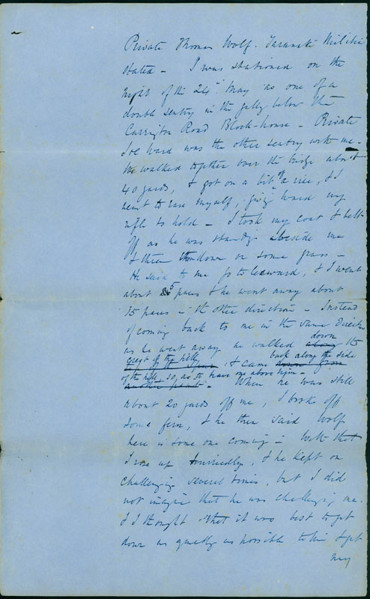 Private Thomas Wolf. Taranaki Militia
stated - I was stationed on the
night of the 24th May as one of a
double sentry in the gully below the
Carrington Road Block-house - Private
Edward was the other sentry with me.
We walked together over the bridge about
40 yards, & got on a bit of a rise, & I
went to ease myself, giving Ward my
rifle to hold - I took my coat & belt
off as he was standing beside me
& threw them down on some grass -
He said to me go to leeward, & I went
about 5 paces & he went away about
15 paces in the other direction - Instead
of coming back to me in the same direction
as he went away he walked along down the
edge of the hill & came back along the side
of the hill, so as to have me above him -
When he was still
about 20 yards off me, I broke off
some fern, & he then said Wolf
here is some one coming - With that
I rose up hurriedly, & he kept on
challenging several times, but I did
not imagine that he was challenging me.
& I thought that it was best to get
down as quietly as possible to him & get
my